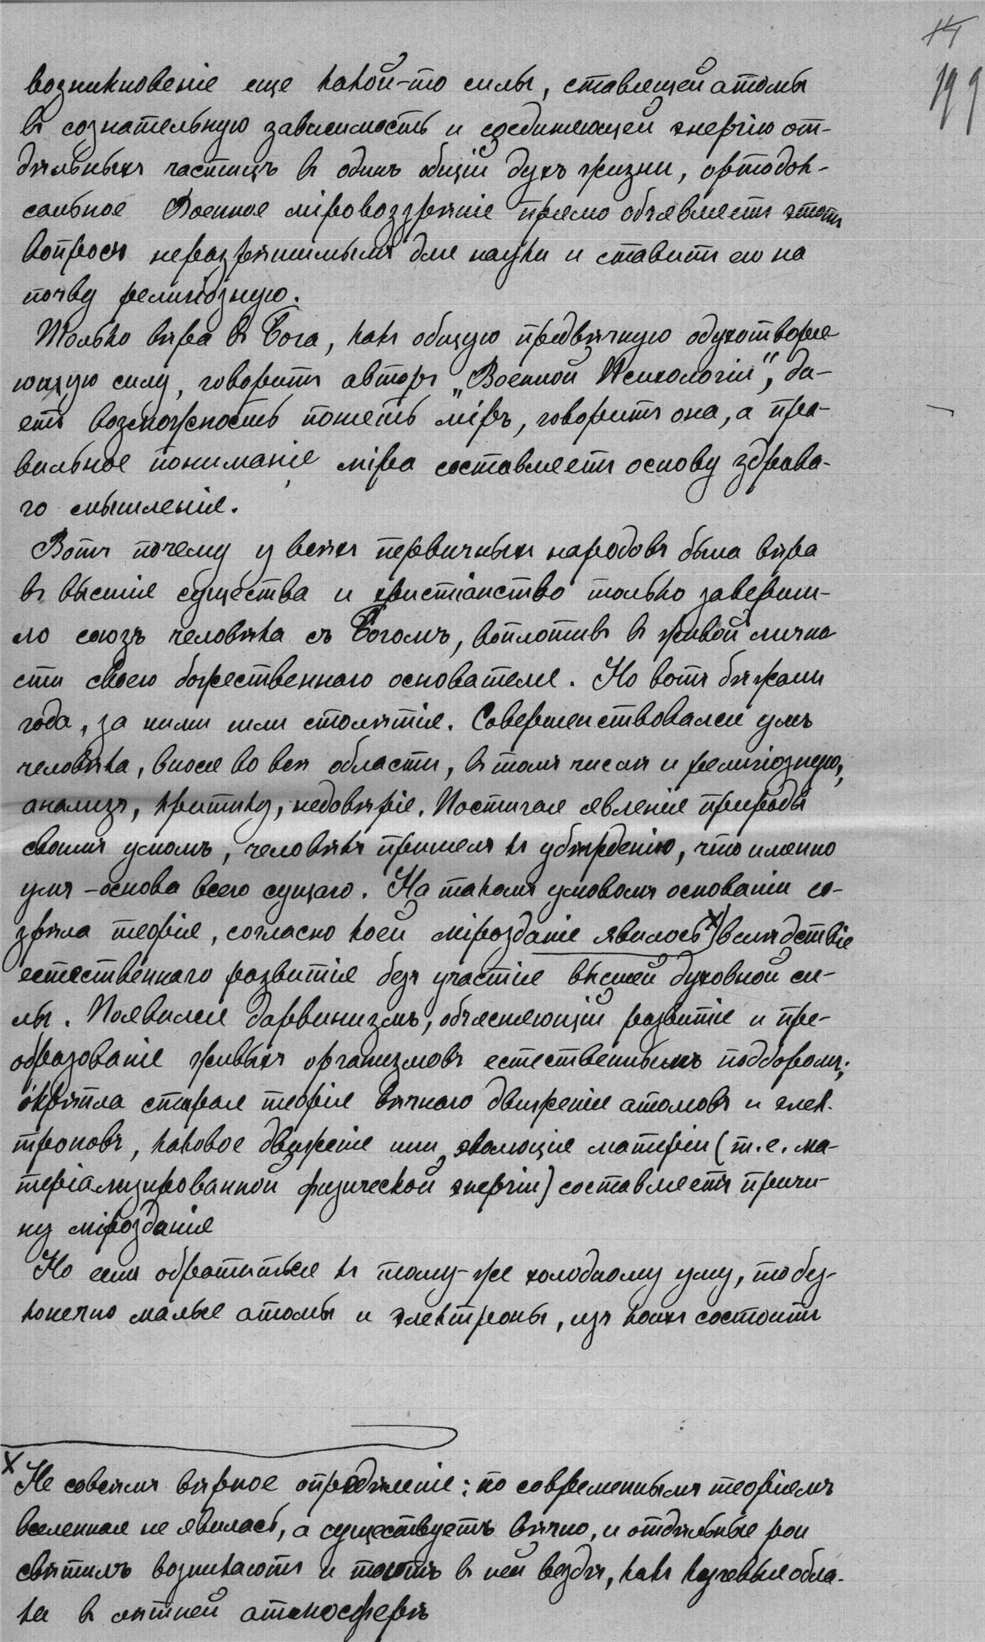 199
возникновеніе еще какой-то силы, ставящей атомы
въ сознательную зависимость и соединяющей энергію от-
дѣльныхъ частицъ въ одинъ общій духъ жизни, ортодок-
сальное Военное міровоззрѣніе прямо объявляетъ этотъ
вопросъ неразрѣшимымъ для науки и ставитъ его на
почву религіозную.
Только вѣра въ Бога, какъ общую предвѣчную одухотворя-
ющую силу, говоритъ авторъ „Военной Психологіи", да-
етъ возможность понять міръ, говоритъ она, а пра-
вильное пониманіе міра составляетъ основу здрава-
го мышленія.
Вотъ почему у всѣхъ первичныхъ народовъ была вѣра
въ высшія существа и христіанство только заверши-
ло союзъ человѣка съ Богомъ, воплотивъ въ живой лично
сти своего божественнаго основателя. Но вотъ бѣжали
года, за ними шли столѣтія. Совершенствовался умъ
человѣка, внося во всѣ области, въ томъ числѣ и религіозную,
анализъ, критику, недовѣріе. Постигая явленія природы
своимъ умомъ, человѣкъ пришелъ къ убѣжденію, что именно
умъ - основа всего сущаго. На такомъ умовомъ основаніи со-
зрѣла теорія, согласно коей мірозданіе явилось х) вслѣдствіе
естественнаго развитія безъ участія высшей духовной си-
лы. Появился дарвинизмъ, объясняющій развитіе и пре-
образованіе живыхъ организмовъ естественнымъ подборомъ;
окрѣпла старая теорія вѣчнаго движенія атомовъ и элек-
троновъ, каковое движеніе или эволюція матеріи (т.е. ма-
теріализированной физической энергіи) составляетъ причи-
ну мірозданія
Но если обратиться къ тому-же холодному уму, то без-
конечно малые атомы и электроны, изъ коихъ состоитъ
х Не совсѣмъ вѣрное опредѣленіе: по современнымъ теоріямъ
вселенная не явилась, а существуетъ вѣчно, и отдѣльные рои
свѣтилъ возникаютъ и таютъ въ ней вездѣ, какъ кучевыя обла-
ка въ лѣтней атмосферѣ